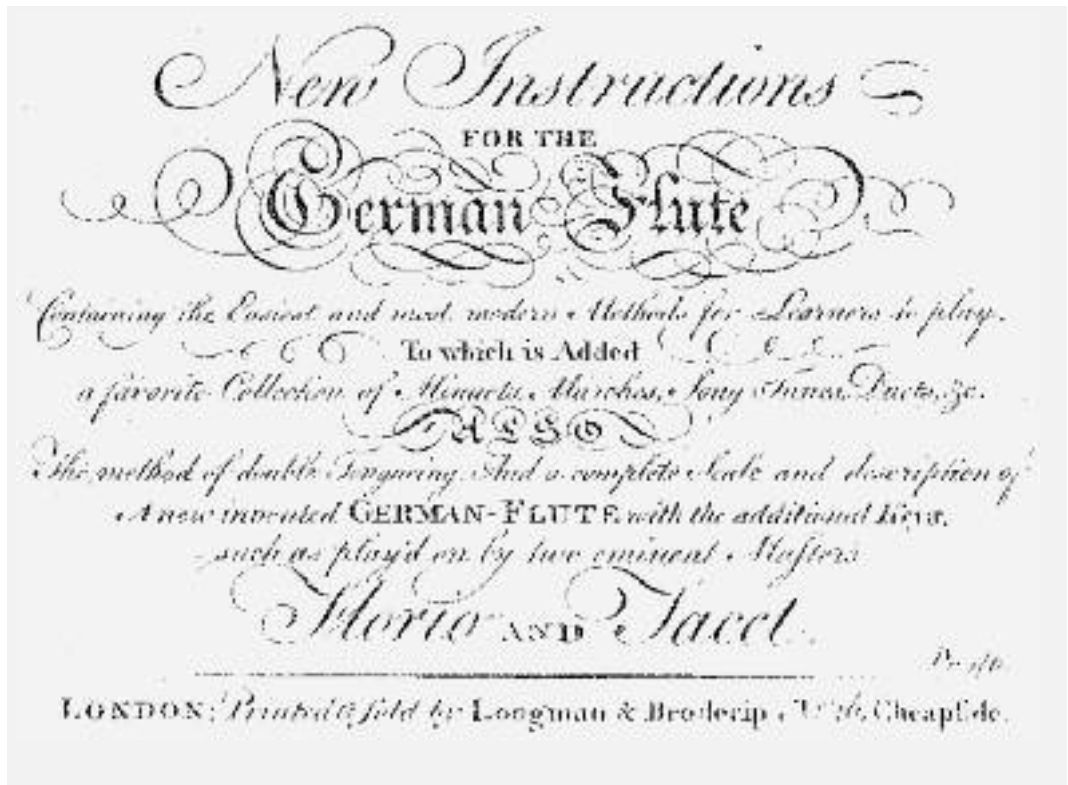 New Instructions
FOR THE
German Flute
Containing the Easiest and most modern Methods for Learners to play,
To which is Added
a favorite Collection of Minuets, Marches, Song Tunes, Duets, &c.
ALSO
The method of double Tongueing, And a complete Scale and description of
A new invented GERMAN-FLUTE with the additional Keys,
such as play'd on by two eminent Masters
Florio AND Tacet.
Pr. 1/6
LONDON; Printed & sold by Longman & Broderip, Cheapside.